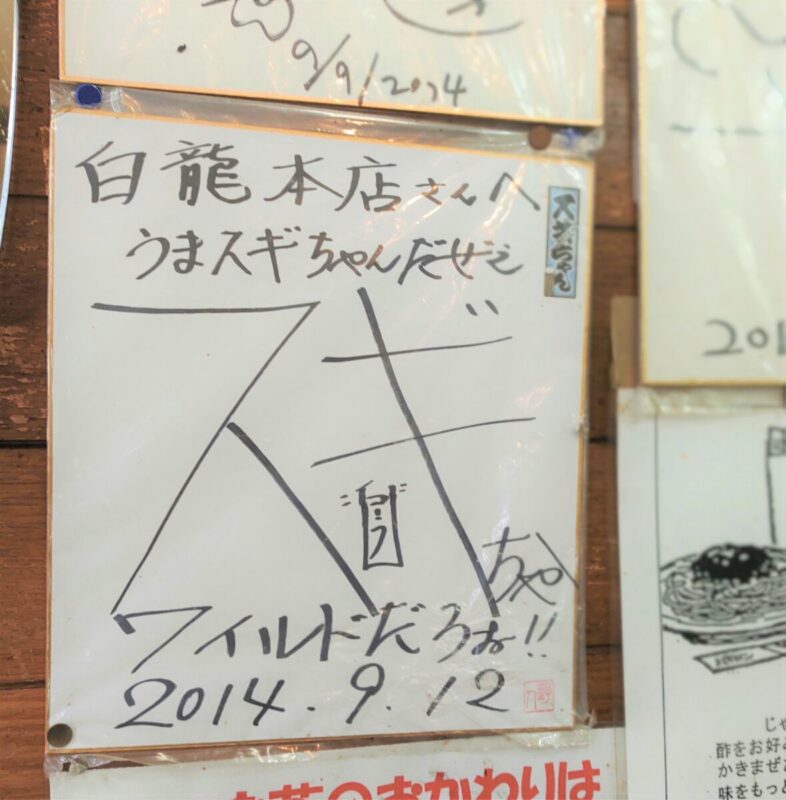 9/9/2014
白龍本店さんへ
スギちゃん
うまスギちゃんだぜぇ
スギちゃん
ワイルドだろぉ!!
2014.9.12
201
じゃ
酢をお好み
かきまぜ
味をもっと
のおかわりは